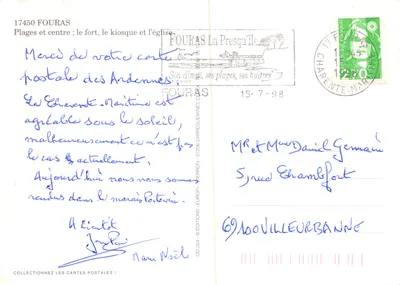 17450 FOURAS
Plages et centre ; le fort, le kiosque et l'église.
Merci de votre carte
postale des Ardennes.
La Charente-Maritime est
agréable sous le soleil,
malheureusement ce n'est pas
le cas actuellement.
Aujourd'hui nous nous sommes
rendus dans le marais Poitevin.
A bientôt
Marie Noële
COLLECTIONNEZ LES CARTES POSTALES !
FOURAS La Presqu'île
Son climat, ses plages, ses huîtres
FOURAS
15-7-98
17
CHARENTE-MARITIME
2,70
Mr et Mme Daniel Germain
5, rue Chambfort
69100 VILLEURBANNE